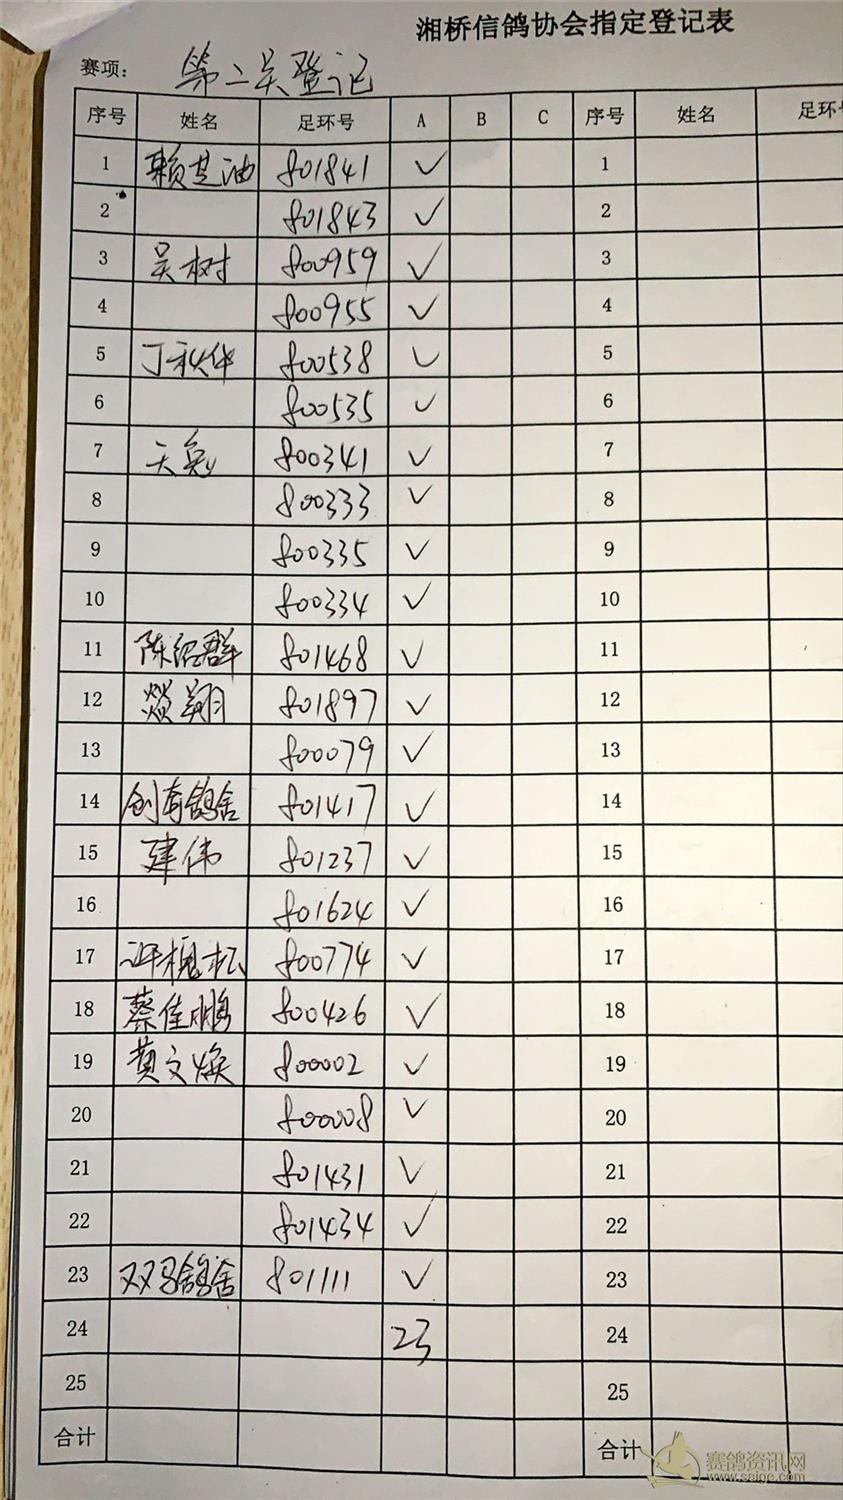 湘桥信鸽协会指定登记表
赛项: 第二关登记
序号 姓名 足环号 A B C 序号 姓名 足环号
1 赖芝油 801841 ✓ 1
2 801843 ✓ 2
3 吴树 800959 ✓ 3
4 800955 ✓ 4
5 丁秋华 800538 ✓ 5
6 800535 ✓ 6
7 天兔 800341 ✓ 7
8 800333 ✓ 8
9 800335 ✓ 9
10 800334 ✓ 10
11 陈绍群 801468 ✓ 11
12 翔 801897 ✓ 12
13 800079 ✓ 13
14 创奇鸽舍 801417 ✓ 14
15 建伟 801237 ✓ 15
16 801624 ✓ 16
17 许槐松 800774 ✓ 17
18 蔡佳鹏 800426 ✓ 18
19 黄文焕 800002 ✓ 19
20 800008 ✓ 20
21 801431 ✓ 21
22 801434 ✓ 22
23 双马鸽舍 801111 ✓ 23
24 23 24
25 25
合计 合计
赛鸽资讯网
www.saige.com